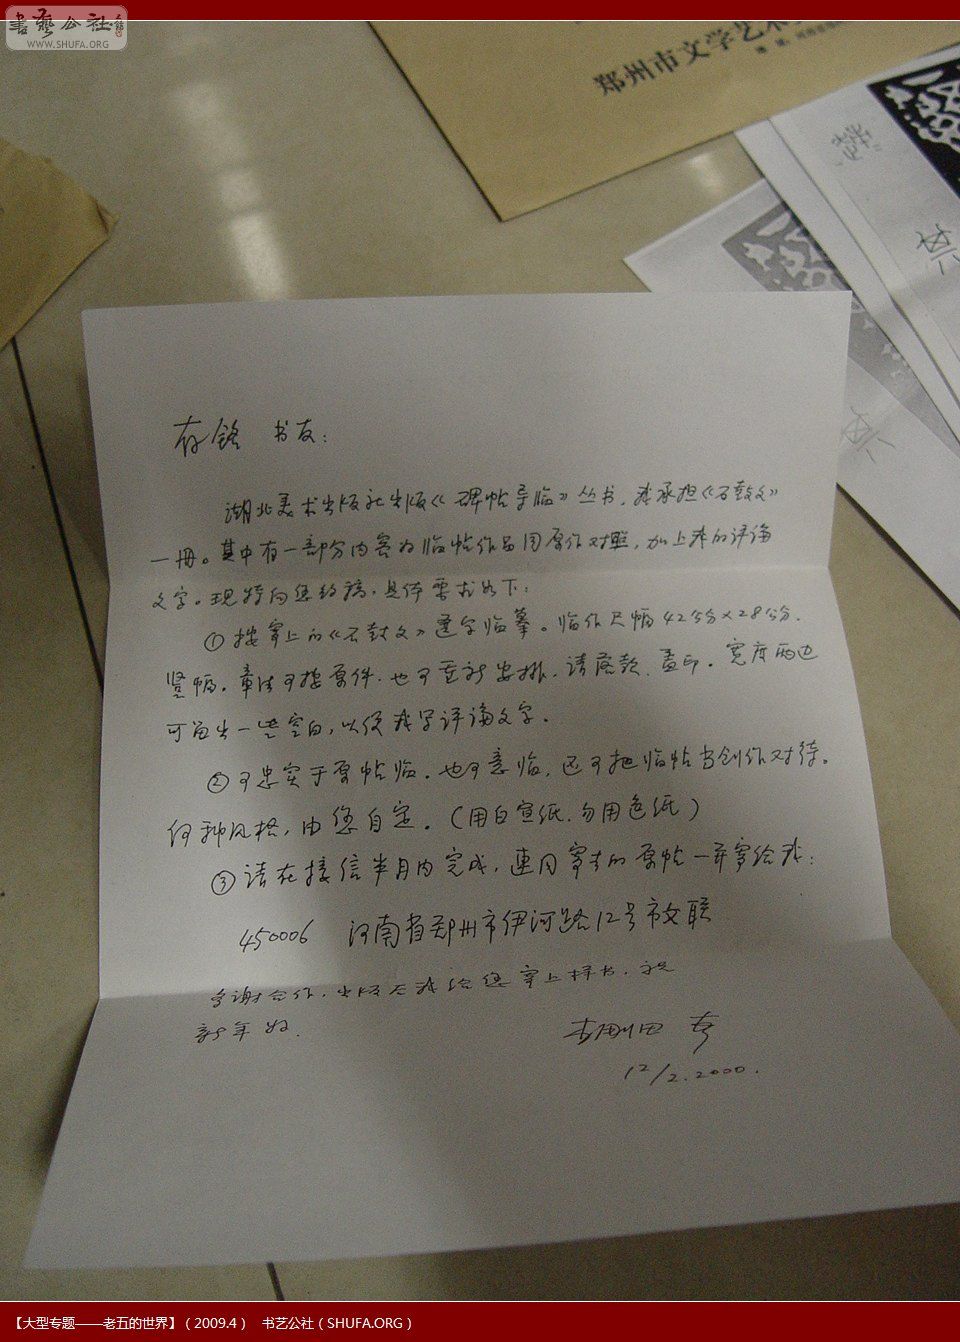 書藝公社
WWW.SHUFA.ORG
郑州市文学艺术
存铭 书友：
湖北美术出版社出版《碑帖导临》丛书，我承担《石鼓文》
一册。其中有一部分内容为临帖作品同原作对照，加上我的评论
文字。现特向您约稿，具体要求如下：
①按寄上的《石鼓文》逐字临摹。临作尺幅42公分×28公分。
竖幅。章法可按原件，也可重新安排，请落款、盖印。宽度两边
可留出一些空白，以便我写评论文字。
②可忠实于原帖临，也可意临，还可把临帖当创作对待。
何种风格，由您自定。（用白宣纸，勿用色纸）
③请在接信半月内完成，连同寄去的原帖一并寄给我：
450006 河南省郑州市伊河路12号市文联
多谢合作，出版后我给您寄上样书，祝
新年好.
李刚田
12/2.2000.
【大型专题——老五的世界】（2009.4） 书艺公社（SHUFA.ORG）